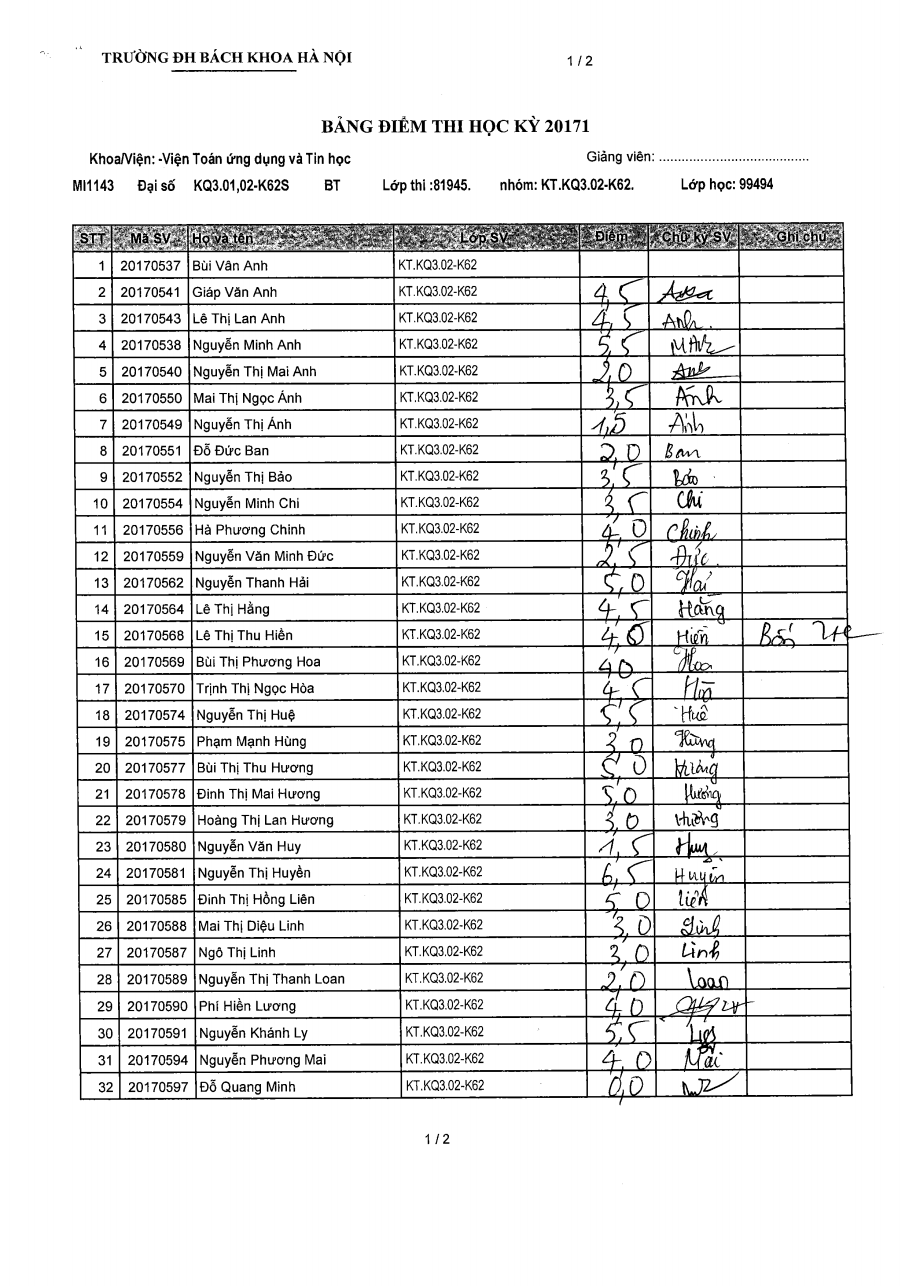 TRƯỜNG ĐH BÁCH KHOA HÀ NỘI 1 / 2
BẢNG ĐIỂM THI HỌC KỲ 20171
Khoa/Viện: -Viện Toán ứng dụng và Tin học Giảng viên: ........................................
MI1143 Đại số KQ3.01,02-K62S BT Lớp thi :81945. nhóm: KT.KQ3.02-K62. Lớp học: 99494
STT Mã SV Họ và tên Lớp SV Điểm Chữ ký SV Ghi chú
1 20170537 Bùi Vân Anh KT.KQ3.02-K62
2 20170541 Giáp Văn Anh KT.KQ3.02-K62 4,5
3 20170543 Lê Thị Lan Anh KT.KQ3.02-K62 4,5 Anh
4 20170538 Nguyễn Minh Anh KT.KQ3.02-K62 5,5
5 20170540 Nguyễn Thị Mai Anh KT.KQ3.02-K62 2,0
6 20170550 Mai Thị Ngọc Ánh KT.KQ3.02-K62 3,5 Ánh
7 20170549 Nguyễn Thị Ánh KT.KQ3.02-K62 1,5 Ánh
8 20170551 Đỗ Đức Ban KT.KQ3.02-K62 2,0 Ban
9 20170552 Nguyễn Thị Bảo KT.KQ3.02-K62 3,5 Bảo
10 20170554 Nguyễn Minh Chi KT.KQ3.02-K62 3,5 Chi
11 20170556 Hà Phương Chinh KT.KQ3.02-K62 4,0 Chinh
12 20170559 Nguyễn Văn Minh Đức KT.KQ3.02-K62 2,5 Đức
13 20170562 Nguyễn Thanh Hải KT.KQ3.02-K62 5,0 Hải
14 20170564 Lê Thị Hằng KT.KQ3.02-K62 4,5 Hằng
15 20170568 Lê Thị Thu Hiền KT.KQ3.02-K62 4,0 Hiền Bốn
16 20170569 Bùi Thị Phương Hoa KT.KQ3.02-K62 40 Hoa
17 20170570 Trịnh Thị Ngọc Hòa KT.KQ3.02-K62 4,5 Hòa
18 20170574 Nguyễn Thị Huệ KT.KQ3.02-K62 5,5 Huê
19 20170575 Phạm Mạnh Hùng KT.KQ3.02-K62 3,0 Hùng
20 20170577 Bùi Thị Thu Hương KT.KQ3.02-K62 5,0 Hương
21 20170578 Đinh Thị Mai Hương KT.KQ3.02-K62 5,0 Hương
22 20170579 Hoàng Thị Lan Hương KT.KQ3.02-K62 3,0 Hương
23 20170580 Nguyễn Văn Huy KT.KQ3.02-K62 1,5 Huy
24 20170581 Nguyễn Thị Huyền KT.KQ3.02-K62 6,5 Huyền
25 20170585 Đinh Thị Hồng Liên KT.KQ3.02-K62 5,0 Liên
26 20170588 Mai Thị Diệu Linh KT.KQ3.02-K62 3,0 Linh
27 20170587 Ngô Thị Linh KT.KQ3.02-K62 3,0 Linh
28 20170589 Nguyễn Thị Thanh Loan KT.KQ3.02-K62 2,0 Loan
29 20170590 Phí Hiền Lương KT.KQ3.02-K62 4,0
30 20170591 Nguyễn Khánh Ly KT.KQ3.02-K62 5,5
31 20170594 Nguyễn Phương Mai KT.KQ3.02-K62 4,0 Mai
32 20170597 Đỗ Quang Minh KT.KQ3.02-K62 0,0
1 / 2